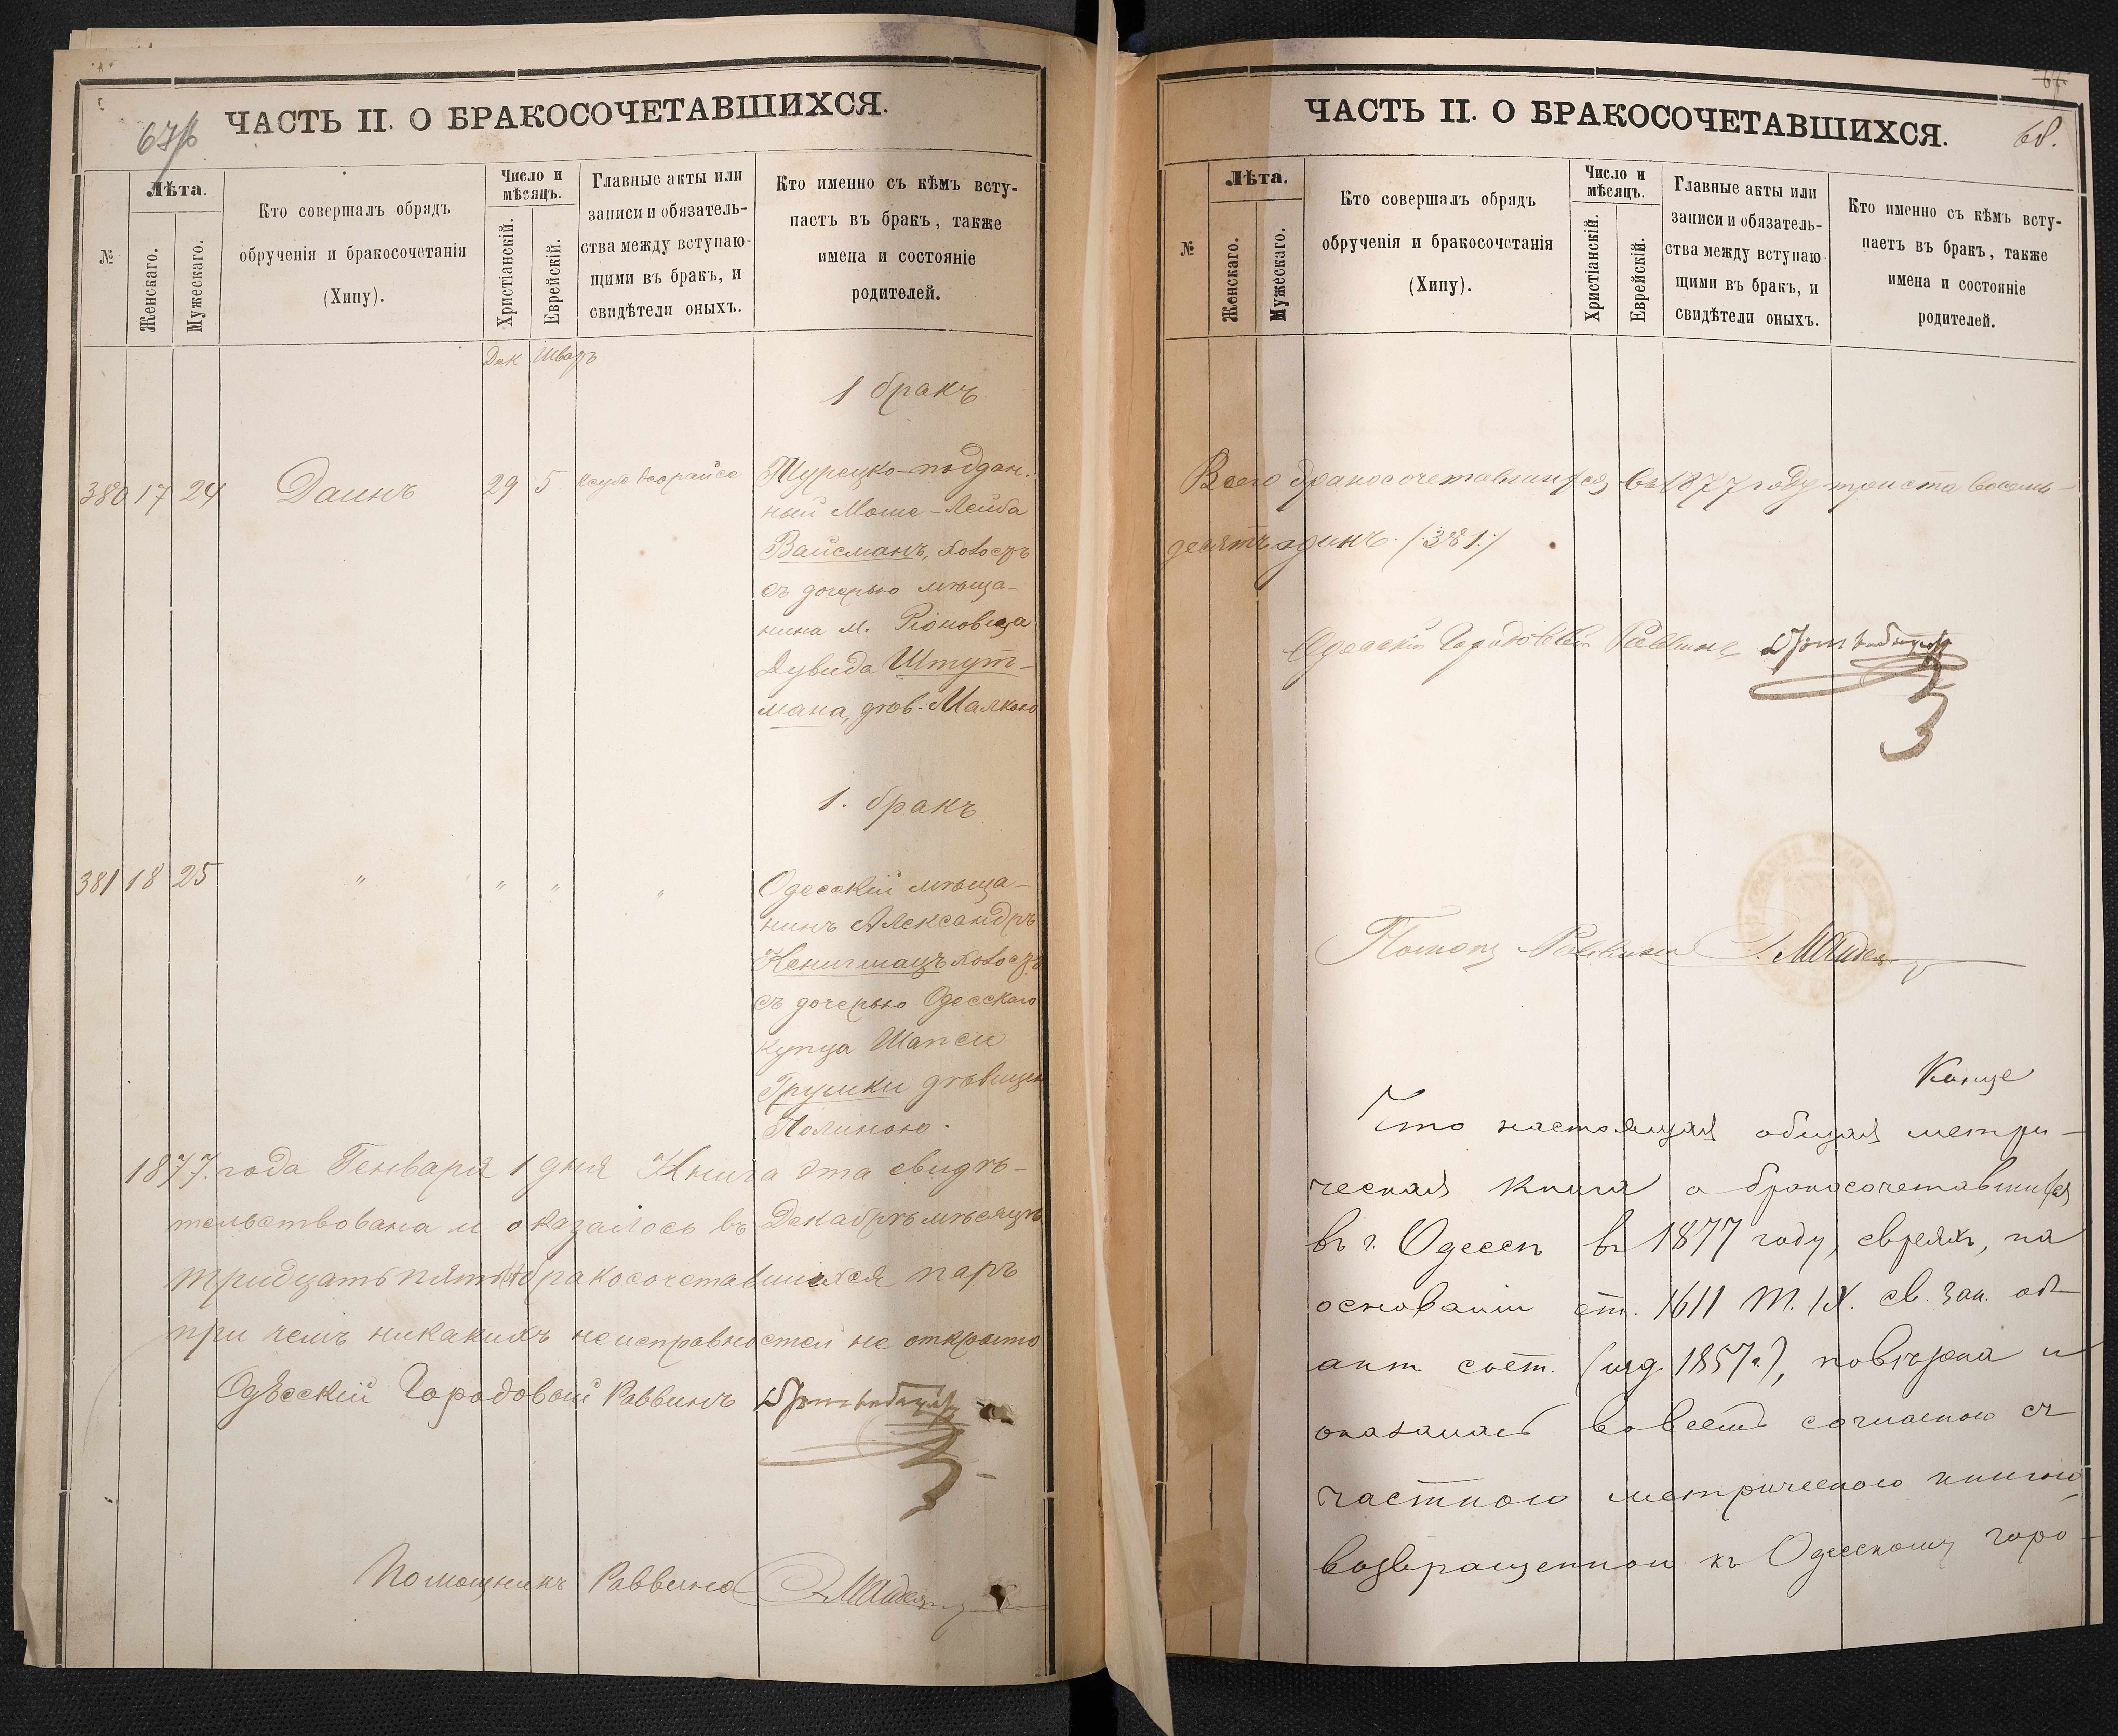 ЧАСТЬ II. О БРАКОСОЧЕТАВШИХСЯ.
№
Лѣта.
Женскаго.
Мужескаго.
Кто совершалъ обрядъ
обрученія и бракосочетанія
(Хипу).
Число и
мѣсяцъ.
Христіанскій.
Еврейскій.
Главные акты или
записи и обязатель-
ства между вступаю-
щими въ бракъ, и
свидѣтели оныхъ.
Кто именно съ кѣмъ всту-
паетъ въ бракъ, также
имена и состояніе
родителей.
Дек
1 бракъ
380 17 24 Даинъ 29 5
Турецко-поддан-
ный Моше-Лейба
Вайсманъ, холост
съ дочерью мѣща-
нина м.
Дувида Штут-
мана, дѣв. Малкою
1. бракъ
381 18 25 " " " "
Одесскій мѣща-
нинъ Александръ
съ дочерью Одесскаго
купца Шапси
дѣвицею
Полиною.
1877. года Генваря 1 дня Книга эта свидѣ-
тельствована и оказалось въ Декабрѣ мѣсяцѣ
тридцать пять бракосочетавшихся паръ
при чемъ никакихъ неисправностей не открыто
Одесскій Городовой Раввинъ
Помощникъ Раввина
ЧАСТЬ II. О БРАКОСОЧЕТАВШИХСЯ.
68.
№
Лѣта.
Женскаго.
Мужескаго.
Кто совершалъ обрядъ
обрученія и бракосочетанія
(Хипу).
Число и
мѣсяцъ.
Христіанскій.
Еврейскій.
Главные акты или
записи и обязатель-
ства между вступаю-
щими въ бракъ, и
свидѣтели оныхъ.
Кто именно съ кѣмъ всту-
паетъ въ бракъ, также
имена и состояніе
родителей.
Всего бракосочетавшихся въ 1877 году триста восемь-
десятъ одинъ. (381.)
Одесскій Городовой Раввинъ
Помощ Раввина
Что настоящая общая метри-
ческая книга о бракосочетавшихся
въ г. Одессѣ въ 1877 году, евреяхъ, на
основаніи ст. 1611 т. IX. св. зак.
сост. (изд. 1857 г.), повѣрена и
оказалась во всемъ согласною съ
частною метрическою книгою,
возвращенною къ Одесскому горо-